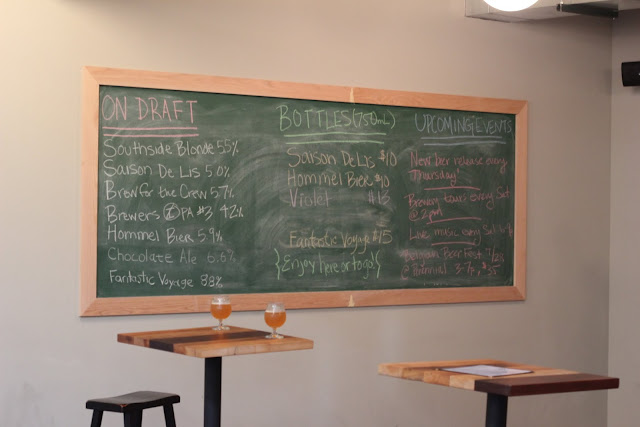 ON DRAFT
Southside Blonde 5.5%
Saison De Lis 5.0%
Brew for the Crew 5.7%
Brewers PA #3 4.2%
Hommel Bier 5.9%
Chocolate Ale 6.6%
Fantastic Voyage 8.8%
BOTTLES (750mL)
Saison De Lis $10
Hommel Bier $10
Violet $13
Fantastic Voyage $15
}Enjoy here or to go!{
UPCOMING EVENTS
New beer release every
Thursday!
Brewery tours every Sat
@ 2pm
Live music every Sat
Beer Fest 7/23
@ 3-7p, $35